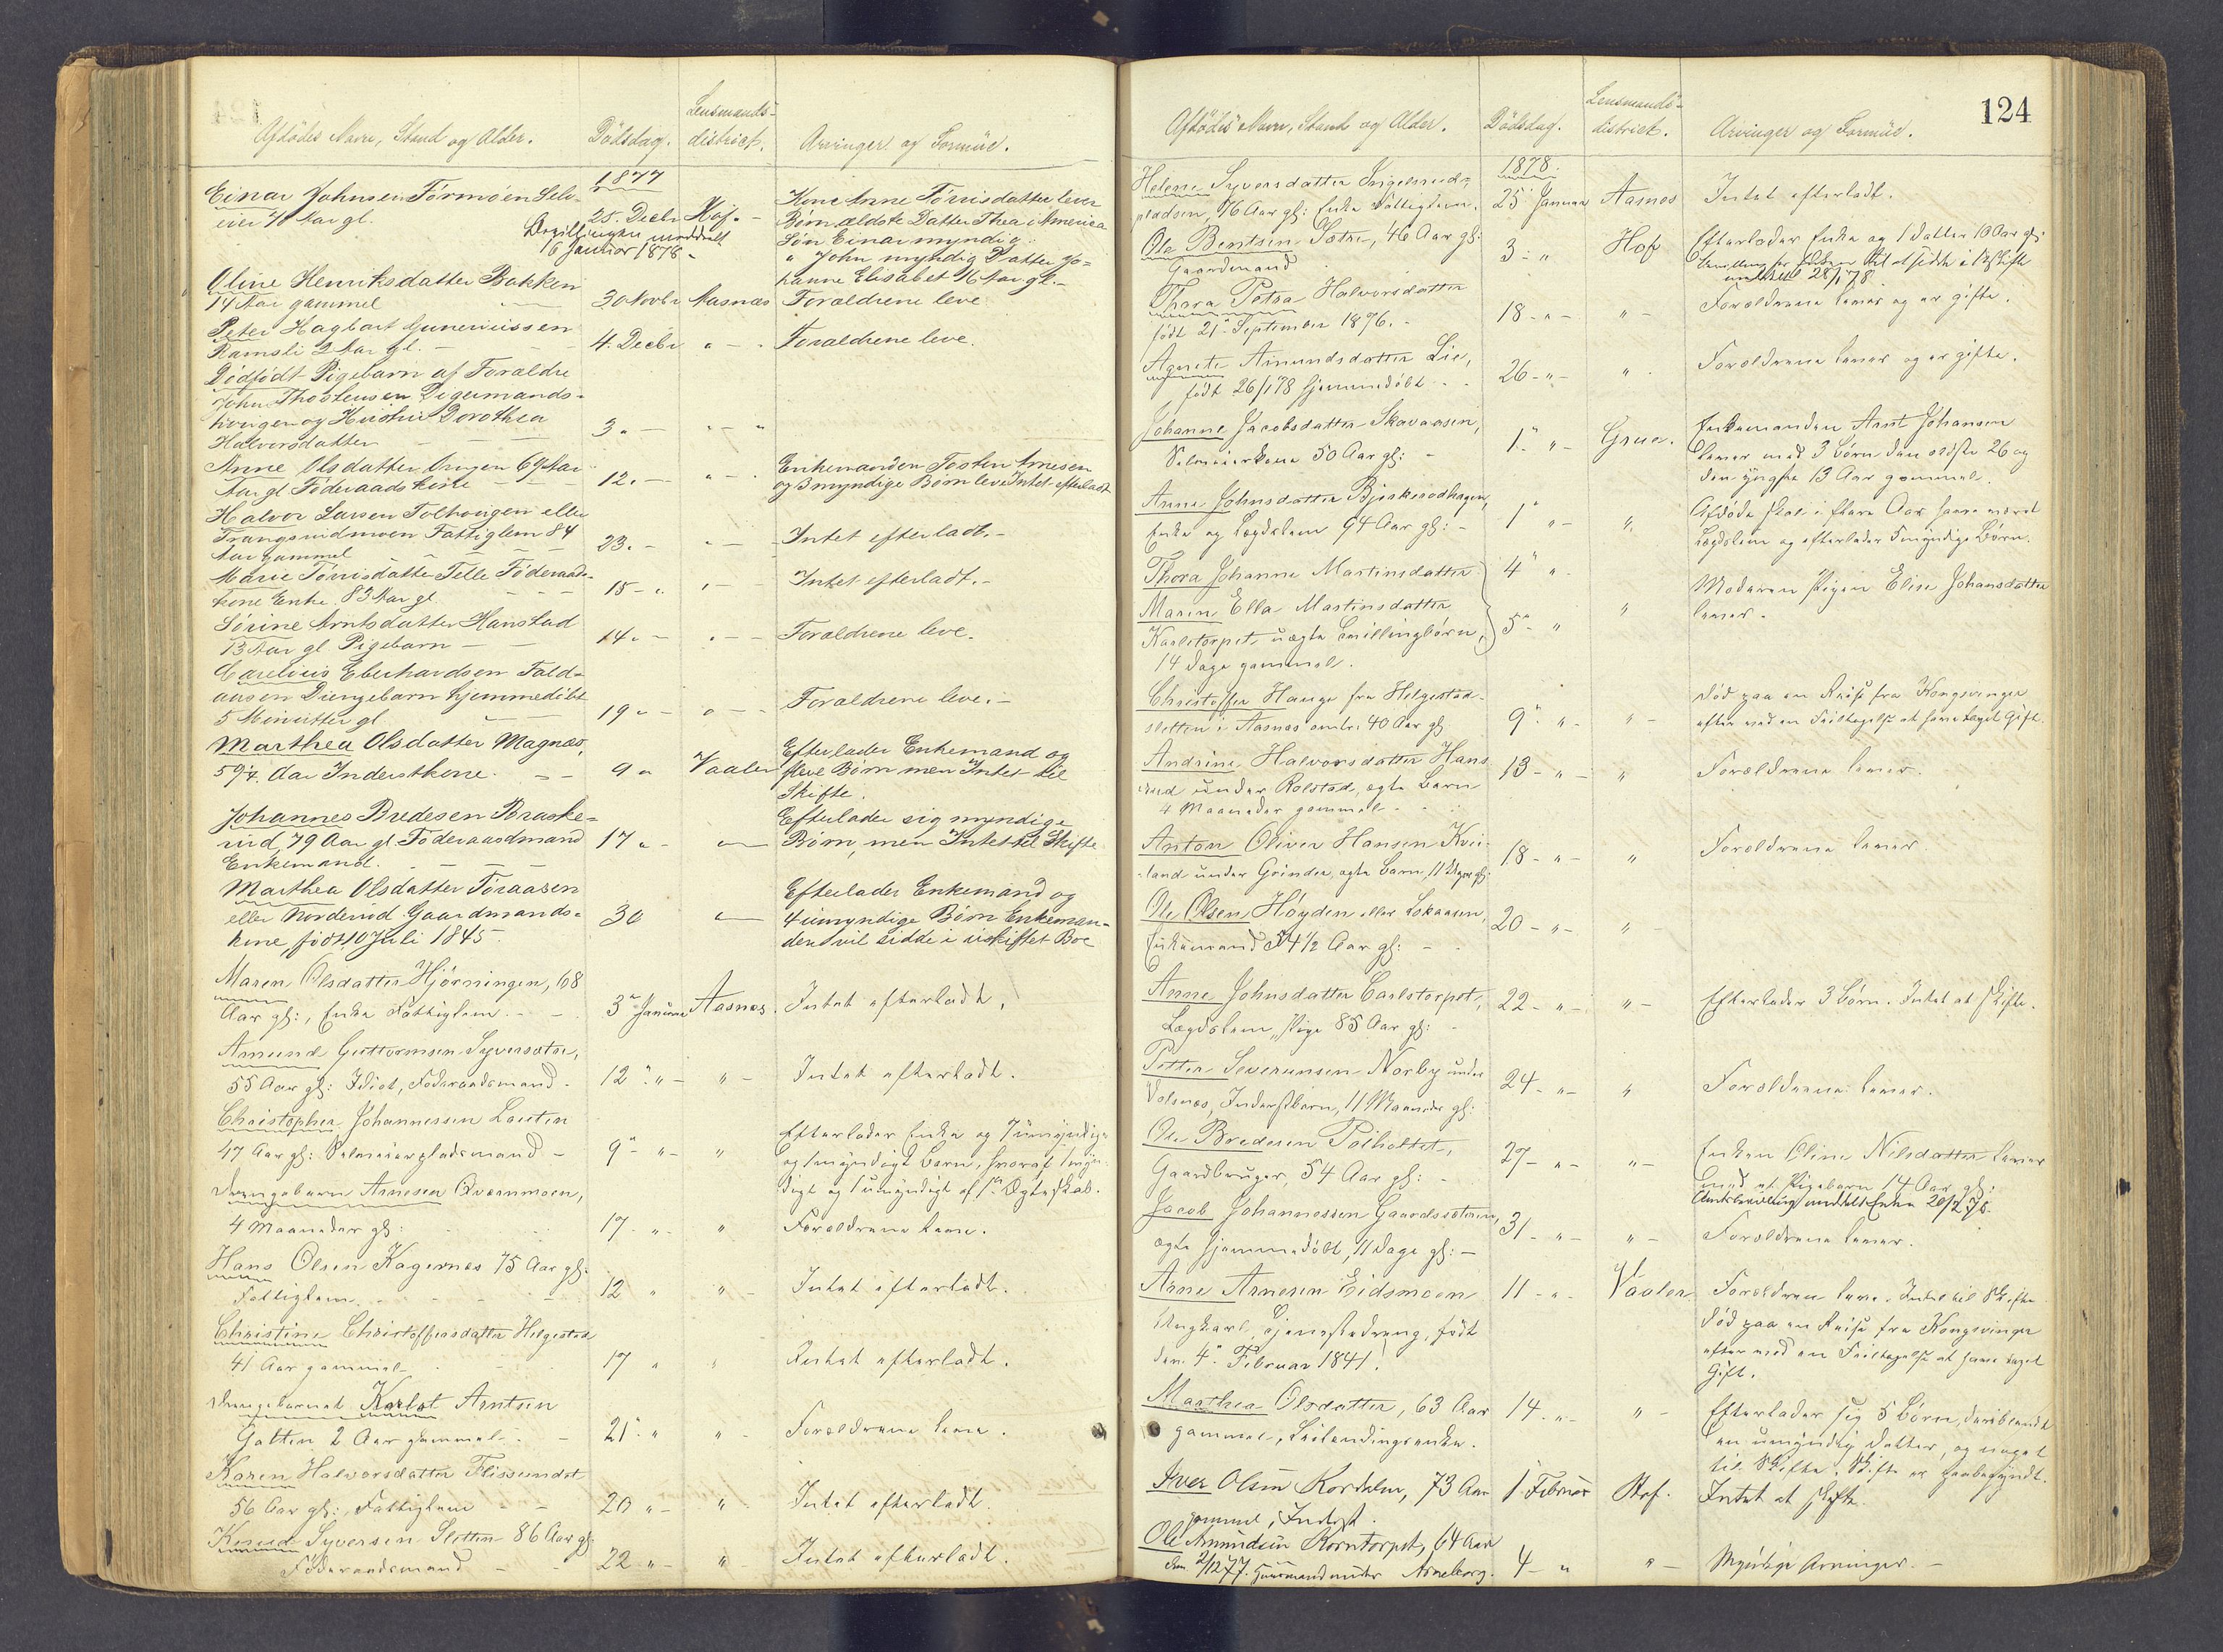 Afdødes Navn, Stand og Alder.
Dödsdag.
Lensmands-
district.
Arvinger og Formüe.
1877
Einar Johnsen Törmöen Selv-
eier 71 Aar gl.
25. Decbr
Hof.
Kone Anne Törrisdatter lever
Børn ældste Datter Thea i America
Søn Einar myndig
" John myndig Datter Jo-
hanne Elisabet 16 Aar gl.
Bevillingen meddelt
16 Januar 1878.
Oline Henriksdatter Bakken
14 Aar gammel
30 Novbr
Aasnæs
Forældrene leve
Peter Hagbart Guneriussen
Ramsli 2 Aar gl.
4. Decbr
Forældrene leve.
Dödfödt Pigebarn af Forældre
John Thostensen Digermands-
hougen og Dorothea
Halvorsdatter
3 "
Anne Olsdatter 69 Aar
Aar gl Föderaadskone
12. "
Enkemanden Tosten Arnesen
og 3 myndige Börn leve Intet efterladt
Halvor Larsen Tolhougen eller
Trangsrudmoen Fattiglem 84
Aar gammel
23. "
Intet efterladt.
Marie Törrisdatter Telle Föderaads-
kone Enke 83 Aar gl.
15 "
Intet efterladt.
Sörine Arntsdatter Hanstad
13 Aar gl Pigebarn
14. "
Forældrene leve.
Carelius Eberhardsen Fald-
aasen Drengebarn hjemmedöbt
5 Minutter gl
19 "
Forældrene leve.
Marthea Olsdatter Magnæs,
59¼ Aar Inderstkone.
9 "
Vaaler
Efterlader Enkemand og
flere Börn men Intet til
Skifte.
Johannes Bredesen Braske-
rud, 79 Aar gl. Föderaadmand
Enkemand.
17 "
Efterlader sig myndige
Börn, men Intet til Skifte
Marthea Olsdatter Toraasen
eller Norderud Gaardmands-
kone, födt 10 Juli 1845.
30
Efterlader Enkemand og
4 umyndige Börn Enkeman-
den vil sidde i uskiftet Boe
Maren Olsdatter Hjörningen, 68
Aar gl:, Enke Fattiglem.
3 Januar
Aasnes.
Intet efterladt.
Amund Guttormsen Syversætre,
55 Aar gl: Idiot, Föderaadsmand.
12 "
Intet efterladt.
Christopher Johannessen Lauten
47 Aar gl: Selveierpladsmand
9 "
Efterlader Enke og 7 umyndige
og 1 myndigt Barn, hvoraf 1 myn-
digt og 1 umyndigt af 1ste Ægteskab.
Drengebarn Arnesen Qvernmoen,
4 Maaneder gl:
17 "
Forældrene leve.
Hans Olsen Kagernes 75 Aar gl:
Fattiglem
12 "
Intet efterladt.
Christine Christoffersdatter Helgestad
41 Aar gammel
17 "
Intet efterladt.
Drengebarnet Karlot Arntsen
Galten 2 Aar gammel
21 "
Forældrene leve.
Karen Halvorsdatter Flissundet
56 Aar gl:, Fattiglem
20 "
Intet efterladt.
Knud Syversen Sletten 86 Aar gl:
Föderaadsmand
22 "
Intet efterladt.
124
Afdödes Navn, Stand og Alder.
Dödsdag.
Lensmands-
district.
Arvinger og Formüe.
1878.
Helene Syversdatter Ingelsrud-
pladsen, 76 Aar gl: Enke Fattiglem.
25 Januar
Aasnes
Intet efterladt.
Ole Berntsen Sætre, 46 Aar gl:
Gaardmand
3 "
Hof
Efterlader Enke og 1 Datter 10 Aar gl:
Bevilling for Enken til at sidde i uskifte
meddelt 28/1 78.
Thora Petra Halvorsdatter
født 21 September 1876.
18 "
Forældrene lever og er gifte.
Agnete Amundsdatter Lie,
født 26/1 78 hjemmedöbt
26 "
Forældrene lever og er gifte.
Johanne Jacobsdatter Skavaasen,
Selveierkone 50 Aar gl:
1 "
Grue.
Enkemanden Arnt Johansen
lever med 3 Börn den ældste 26 og
den yngste 13 Aar gammel.
Anne Johnsdatter Bjerkerodhagen,
Enke og Lægdslem 94 Aar gl:
1 "
Afdöde skal i flere Aar have været
Lægdslem og efterlader myndige Börn.
Thora Johanne Martinsdatter
4 "
Maren Ella Martinsdatter
Karlstorpet, uægte Tvillingbörn,
14 Dage gammel.
5 "
Moderen Pigen Elise Johansdatter
lever.
Christoffer Hauge fra Helgestad-
sletten i Aasnes omtr. 40 Aar gl
9 "
Död paa en Reise fra Kongsvinger
efter ved en Feiltagelse at have taget Gift.
Andrine Halvorsdatter Hans-
rud under Rolstad, ægte Barn
4 Maaneder gammel
13 "
Forældrene lever.
Anton Oliver Hansen Kvi-
land under Grinder, ægte Barn, 11 Uger gl:
18 "
Forældrene lever.
Ole Olsen Höyden eller Lokaasen,
Enkemand 74½ Aar gl:
20 "
Anne Johnsdatter Carlstorpet,
Lægdslem, Pige 85 Aar gl:
22 "
Efterlader 3 Börn. Intet at skifte.
Petter Severinsen Norby under
Volsnes, Inderstbarn, 11 Maaneder gl:
24 "
Forældrene lever.
Ole Bredesen Polholtet,
Gaardbruger, 54 Aar gl:
27 "
Enken Oline Nilsdatter lever
med et Pigebarn 14 Aar gl:
Amtsbevilling meddelt Enken 20/2 78.
Jacob Johannessen Gaardssæteren,
ægte hjemmedöbt, 11 Dage gl:
31 "
Forældrene lever.
Arne Arnesen Eidsmoen
Ungkarl, Tjenestedreng, født
den 4 Februar 1841.
11 "
Vaaler
Forældrene leve. Intet til Skifte
Död paa en Reise fra Kongsvinger
efter ved en Feiltagelse at have taget
Gift.
Marthea Olsdatter, 63 Aar
gammel, Leilendingsenke.
14 "
Efterlader sig 5 Börn, deriblandt
en umyndig Datter, og noget
til Skifte. Skifte er paabegyndt.
Iver Olsen Kordalen, 73 Aar
gammel, Inderst.
1 Februar
Hof.
Intet at skifte.
Ole Amundsen Korntorpet, 64 Aar
den 2/12 77. Huusmand under Arneberg.
4 "
Myndige Arvinger.